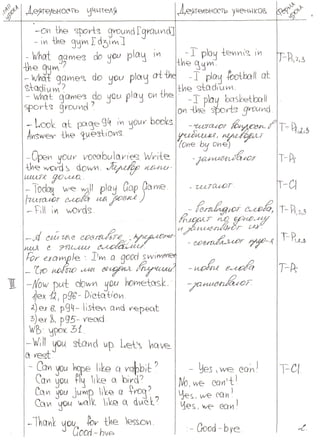 Деятельность учителя
Деятельность учеников
- on the sports ground [ground]
- in the gym [dʒim]
- What games do you play in
the gym?
- What games do you play at the
stadium?
- What games do you play on the
sports ground?
- I play tennis in
the gym.
- I play football at
the stadium.
- I play basketball
on the sports ground.
T-P1,2,3
- Look at page 94 in your books
Answer the questions.
- читают вопросы в
учебнике, переводят
(one by one)
T-P1,2,3
- Open your vocabularies. Write
the words down. Перевод напи-
шите дома.
- записывают
T-P1
- Today we will play Gap Game.
(читают слова на доске)
- Fill in words.
- читают
- Вставляют слова,
по одному
и записывают их
T-Cl
T-P1,2,3
- А сейчас составьте предложе-
ния с этими словами
For example: I'm a good swimmer
- составляют пред-я
T-P1,2,3
- Что нового мы сегодня изучили?
- новые слова
T-P1
III
- Now put down you hometask.
1) ex 12, p96 - Dictation
2) ex 6, p94 - listen and repeat
3) ex 8, p95 - read
WB: урок 31
- записывают
- Will you stand up. Let's have
a rest
- Can you hope like a rabbit?
Can you fly like a bird?
Can you jump like a frog?
Can you walk like a duck?
- Yes, we can!
No, we can't!
Yes, we can!
Yes, we can!
T-Cl
- Thank you for the lesson.
Good-bye
- Good-bye
2